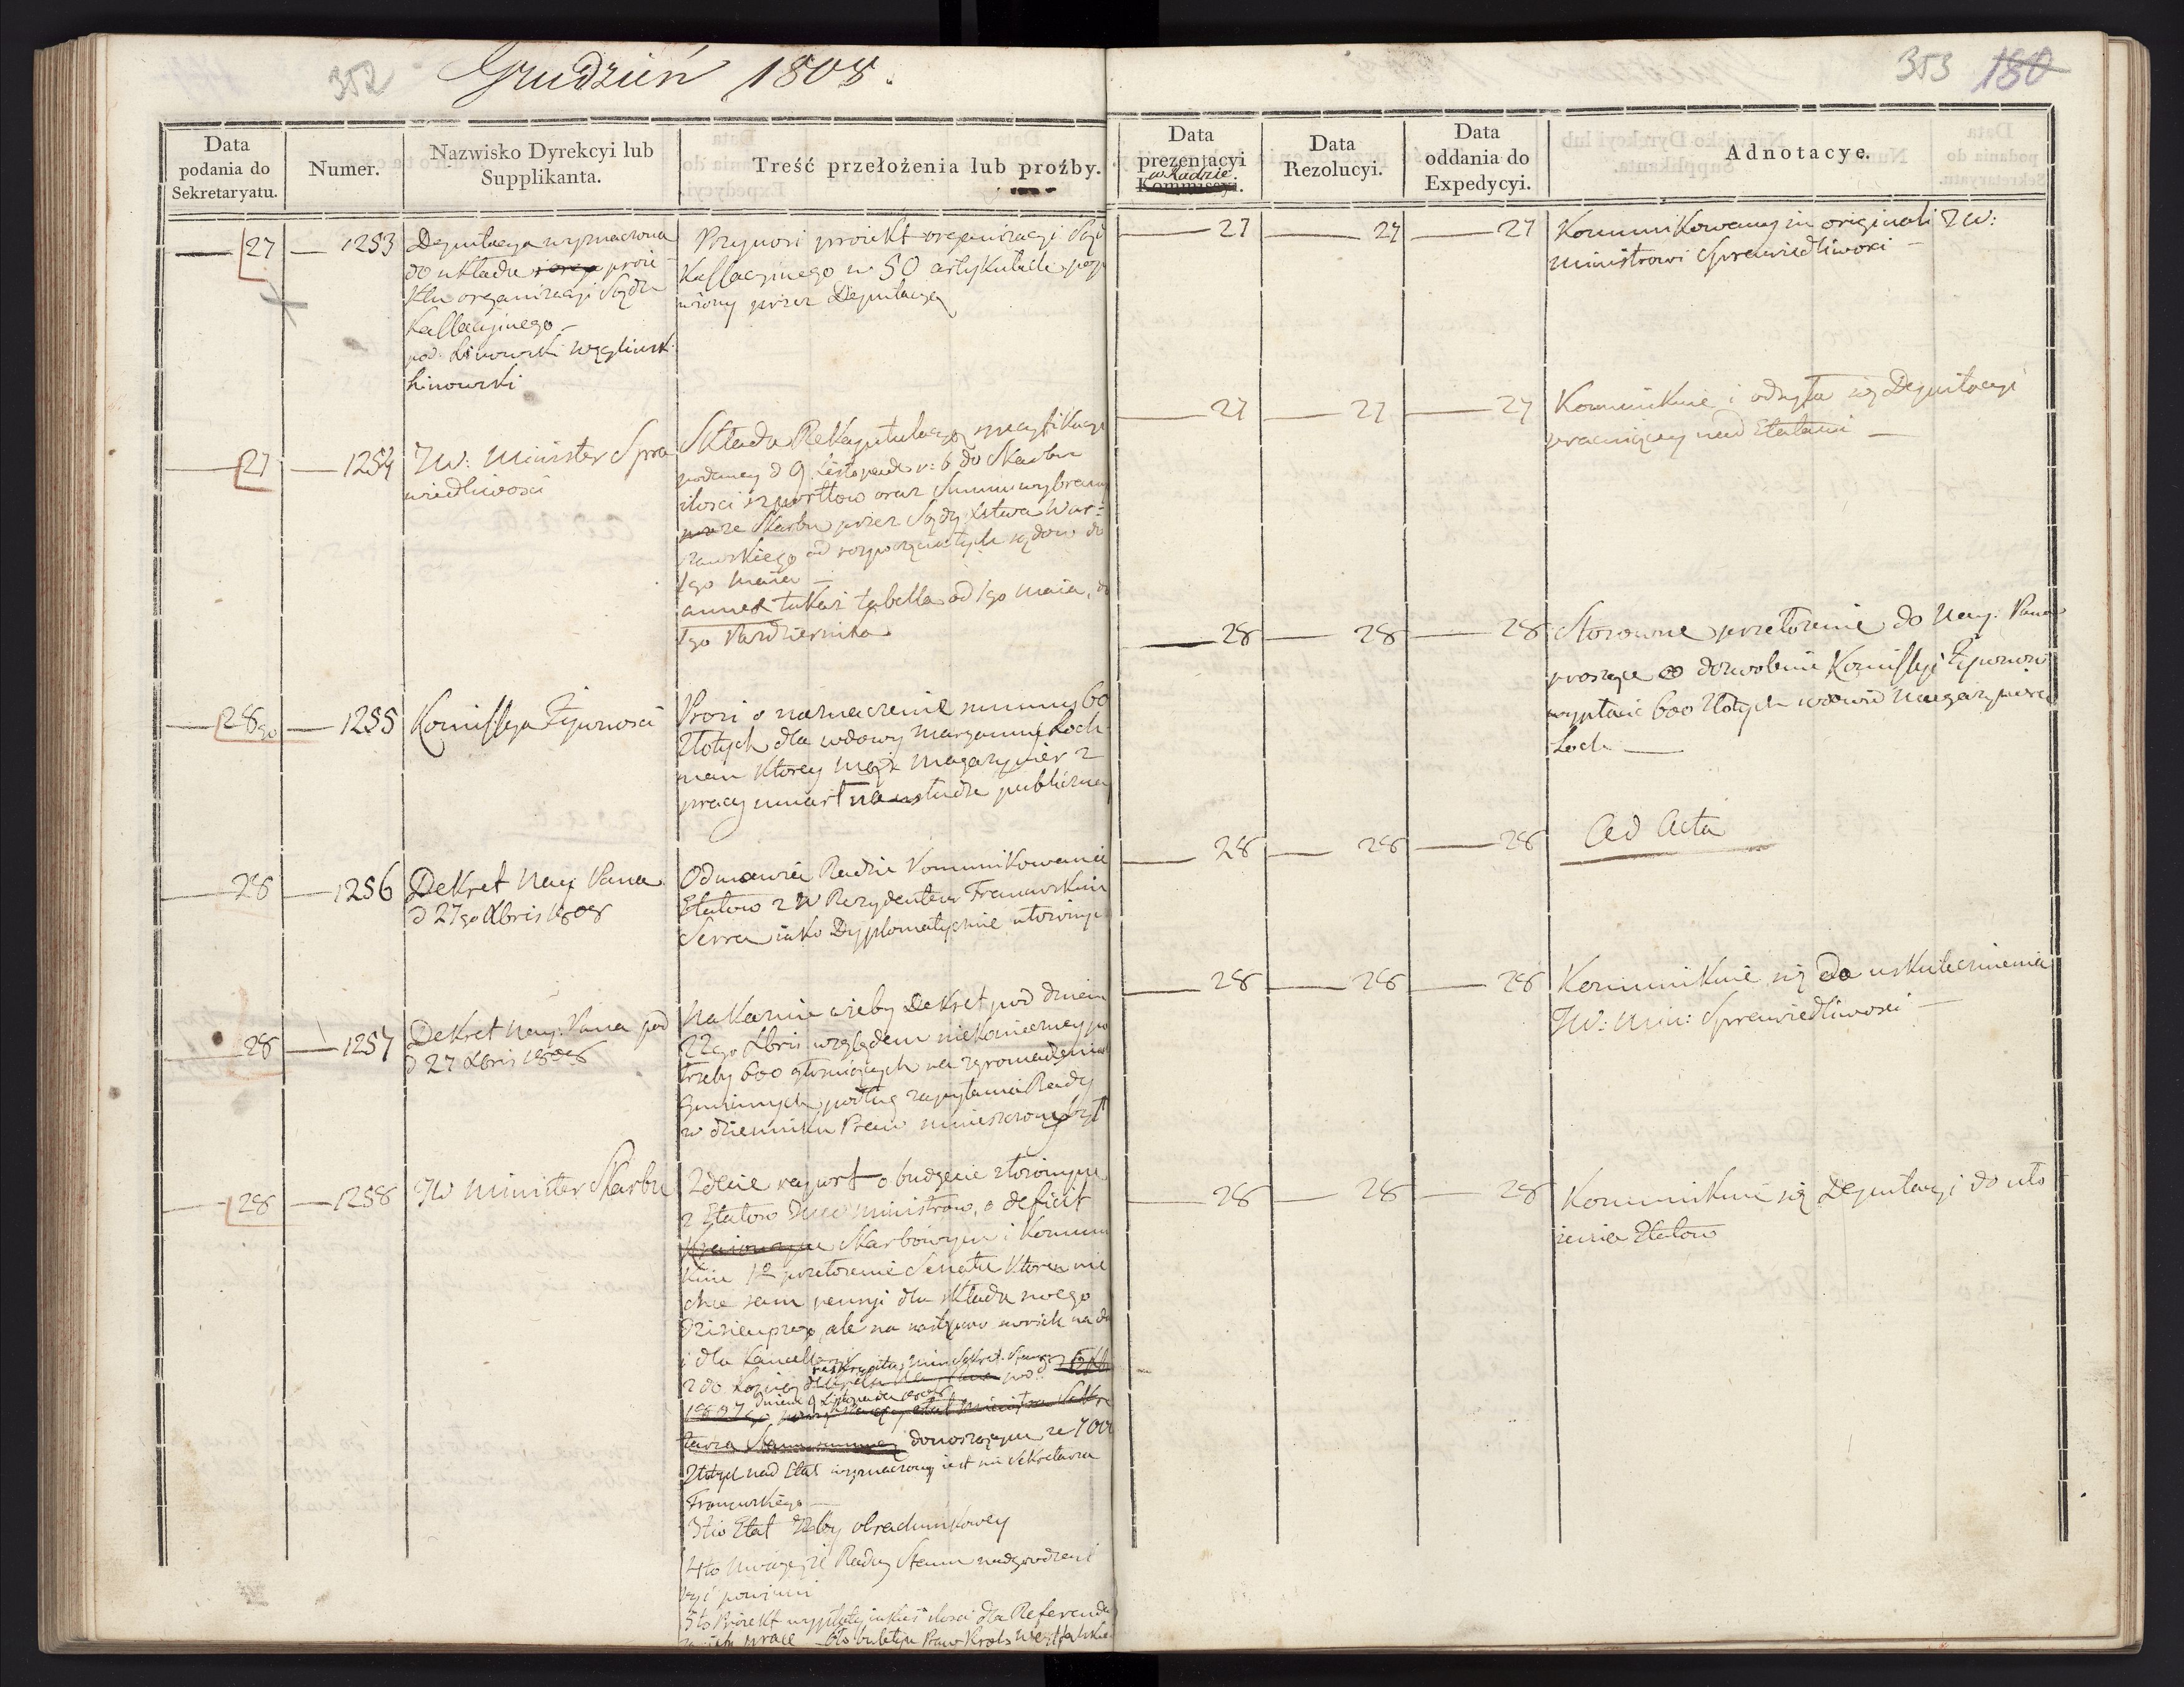 352
Grudzień 1808.
353 180
Data podania do Sekretaryatu.
Numer.
Nazwisko Dyrekcyi lub Supplikanta.
Treść przełożenia lub proźby.
Data prezentacyi w Radzie Kommissyi.
Data Rezolucyi.
Data oddania do Expedycyi.
Adnotacye.
27 — 1253
Deputacya wyznaczona
do układu proie
ktu organizacyi Sądu
Kassacyinego –
pod. Linowski Węgliński
Linowski
Przynosi proiekt organizacyi Sądu
Kassacyinego w 50 artykułach
przez Deputacyą
27 — 27 — 27
Kommunikowany in originali JW:
Ministrowi Sprawiedliwosci –
27 — 1254
JW: Minister Spra
wiedliwosci
Składa Rekapitulacyą specyfikacyi
podaney d 9 Listopada r: b do Skarbu
ilosci szportlow oraz Summ wybranych
ze Skarbu przez Sądy Xstwa War:
szawskiego od rozpoczęcia tych sądow do
1go Maia –
annex takaż tabella od 1go Maia, do
1go Pazdziernika
27 — 27 — 27
Kommunikuie i odsyła się Deputacyi
pracuiącey nad Etatami –
28go — 1255
Komissya Żywnosci
Prosi o naznaczenie summy 60
złotych dla wdowy Maryanny Loch
man ktorey mąż Magazynier z
pracy umarł na usłudze publiczney
28 — 28 — 28
Stosowne przełożenie do Nay. Pana
prosząc o dozwolenie Komissyi Żywnosci
wypłacić 600 złotych wdowie Magazyniera
Loch —
28 — 1256
Dekret Nay: Pana
d 27go Xbris 1808
Odmawia Radzie kommunikowania
Etatow z JW Rezydentem Francuskim
Serra iako Dyplomatycznie
28 — 28 — 28
Ad Acta
28 — 1257
Dekret Nay: Pana pod
d 27 Xbris 1808
Nakazuie ażeby Dekret pod dniem
22go Xbris względem niekonieczney po
trzeby 600 głosuiących na zgromadzeniach
Gminnych podług zapytania Rady
w dzienniku Praw umieszczony był
28 — 28 — 28
Kommunikuie się do uskutecznienia
JW: Min: Sprawiedliwosci –
28 — 1258
JW Minister Skarbu
Zdaie raport o budżecie złożonym
z Etatow JWW Ministrow, o deficit
Kraiowym Skarbowym i Kommu
kuie 1º przełożenie Senatu ktory nie
chce sam pensyi dla składu swego
dzisieyszego, ale na
i dla Kancellaryi
2do Kopię reskryptu Min Sekret. Stanu pod
dniem 9 Listopada 1808
donoszącym ze 7000
Złotych nad Etat wyznaczony iest na Sekretarza
Francuskiego —
3tio Etat Izby obrachunkowey
4to Uwagę że Radzcy Stanu nadgrodzeni
być powinni
5to Proiekt wypłaty iakieś ilosci dla Referenda
za ich prace – 6to buletyn Praw Krols Westfalskie
28 — 28 — 28
Kommunikuie się Deputacyi do uło
żenia Etatow